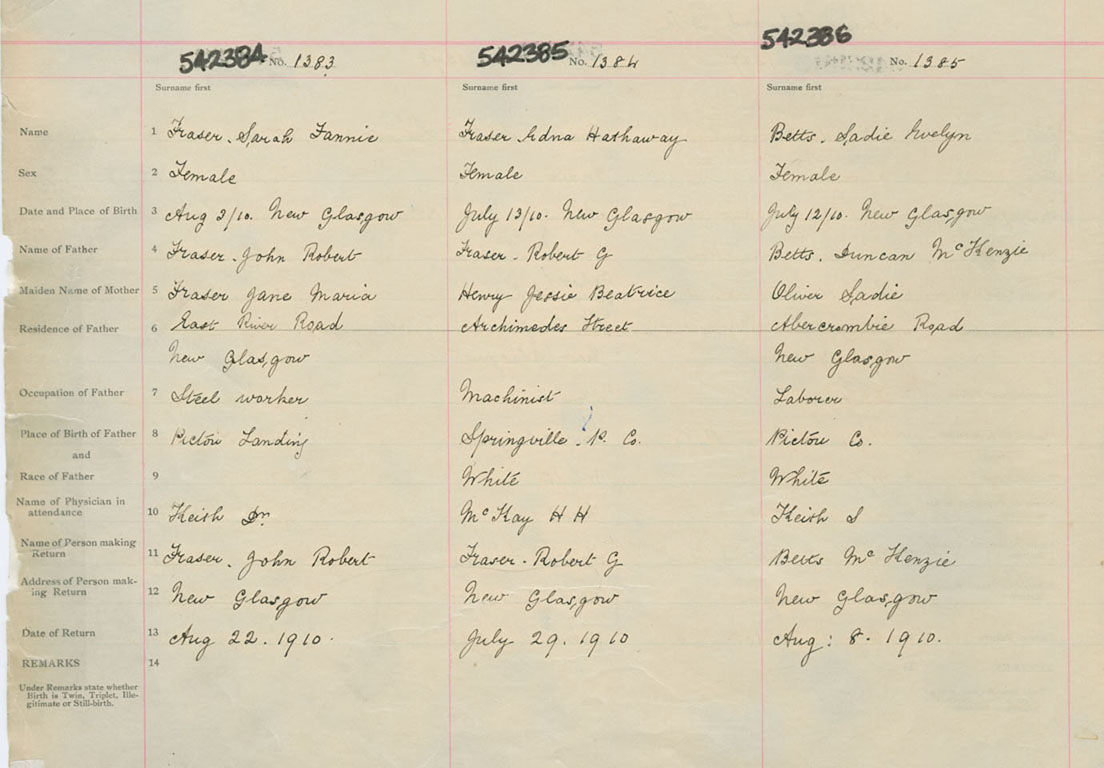 542384 No. 1383 542385 No. 1384 542386 No. 1385
Surname first Surname first Surname first
Name 1 Fraser. Sarah Fannie Fraser Edna Hathaway Betts. Sadie Evelyn
Sex 2 Female Female Female
Date and Place of Birth 3 Aug 3/10. New Glasgow July 13/10. New Glasgow July 12/10. New Glasgow
Name of Father 4 Fraser. John Robert Fraser. Robert G Betts. Duncan McKenzie
Maiden Name of Mother 5 Fraser Jane Maria Henry Jessie Beatrice Oliver Sadie
Residence of Father 6 East River Road Archimedes Street Abercrombie Road
New Glasgow New Glasgow
Occupation of Father 7 Steel worker Machinist Laborer
Place of Birth of Father 8 Pictou Landing Springville. P. Co. Pictou Co.
and
Race of Father 9 White White
Name of Physician in
attendance 10 Keith Dr McKay H H Keith S
Name of Person making
Return 11 Fraser. John Robert Fraser. Robert G Betts McKenzie
Address of Person mak-
ing Return 12 New Glasgow New Glasgow New Glasgow
Date of Return 13 Aug 22. 1910. July 29. 1910 Aug: 8. 1910.
REMARKS 14
Under Remarks state whether
Birth is Twin, Triplet, Ille-
gitimate or Still-birth.